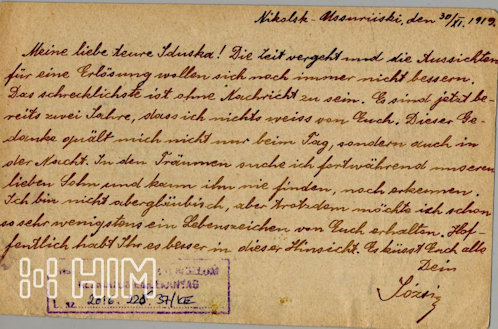 Nikolsk-Ussuriiski, den 30/XI. 1919.
Meine liebe teure Iduska! Die Zeit vergeht und die Aussichten
für eine Erlösung wollen sich noch immer nicht bessern.
Das schrecklichste ist ohne Nachricht zu sein. Es sind jetzt be-
reits zwei Jahre, dass ich nichts weiss von Euch. Dieser Ge-
danke quält mich nicht nur beim Tag, sondern auch in
der Nacht. In den Träumen suche ich fortwährend unseren
lieben Sohn und kann ihn nie finden, noch erkennen.
Ich bin nicht abergläubisch, aber trotzdem möchte ich schon
so sehr wenigstens ein Lebenszeichen von Euch erhalten. Hof-
fentlich habt Ihr es besser in dieser Hinsicht. Es küsst Euch alle
Dein
Józsi
HIM